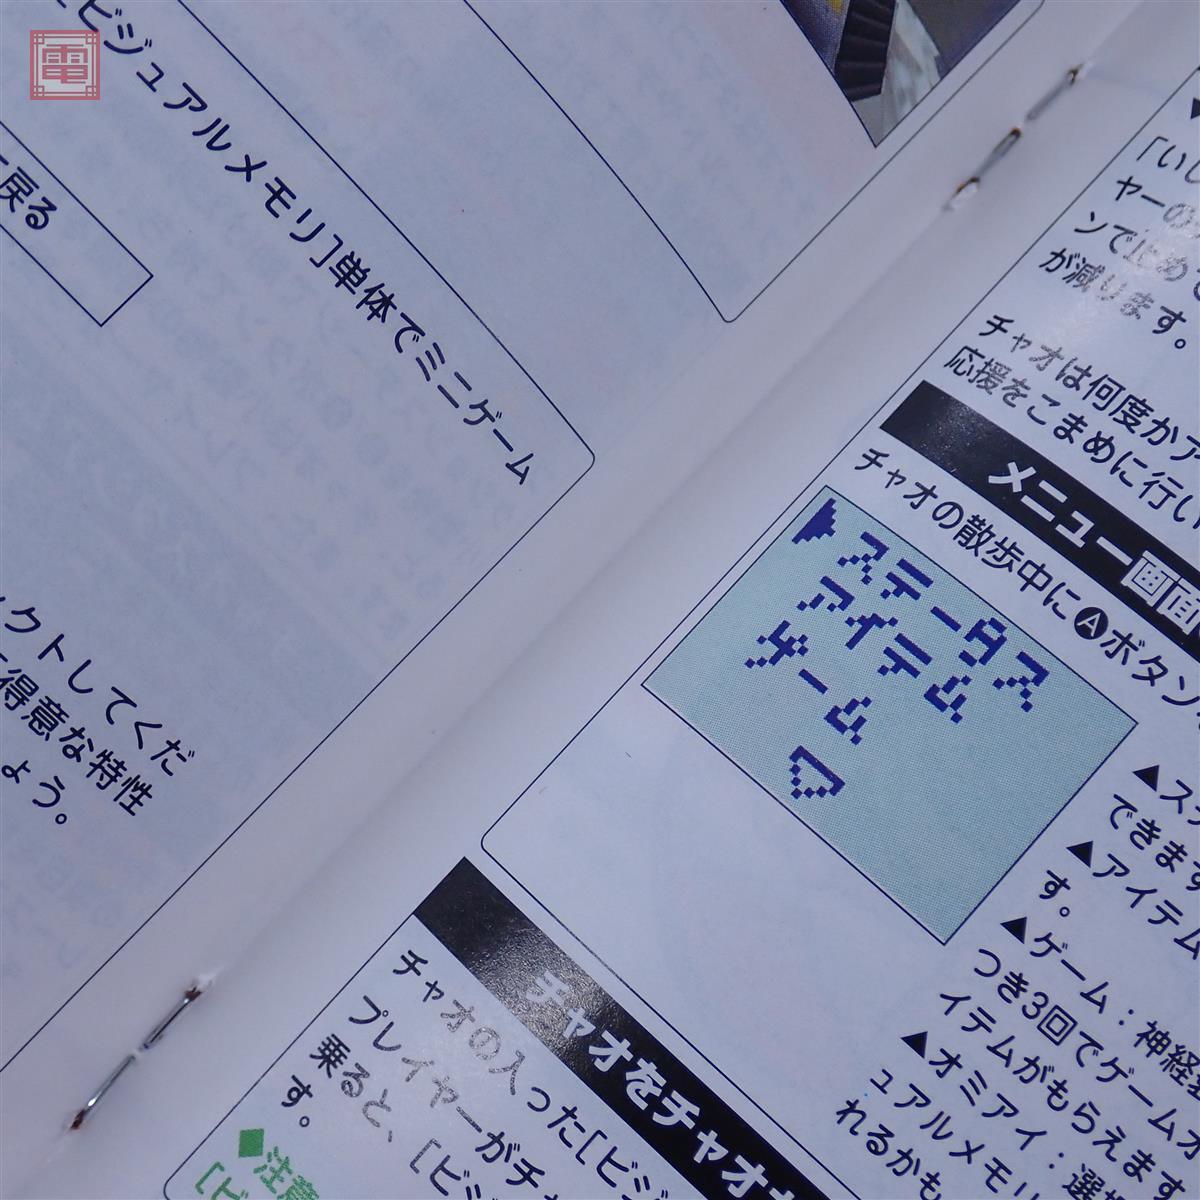 電
ビジュアルメモリ]単体でミニゲーム
戻る
クトしてくだ
得意な特性
ょう。
「いし
ヤーの
ンで止めて
が減ります。
チャオは何度かア
応援をこまめに行い
メニュー画面
チャオの散歩中にAボタン
ステータス
アイテム
ゲーム
▲ステ
できます
▲アイテム
す。
▲ゲーム:神経
つき3回でゲームオ
イテムがもらえます
▲オミアイ:選
ュアルメモ
れるかも
チャオをチャオ
チャオの入った[ビジ
プレイヤーがチ
乗ると、[ビ
す。
◆注意
[ビ